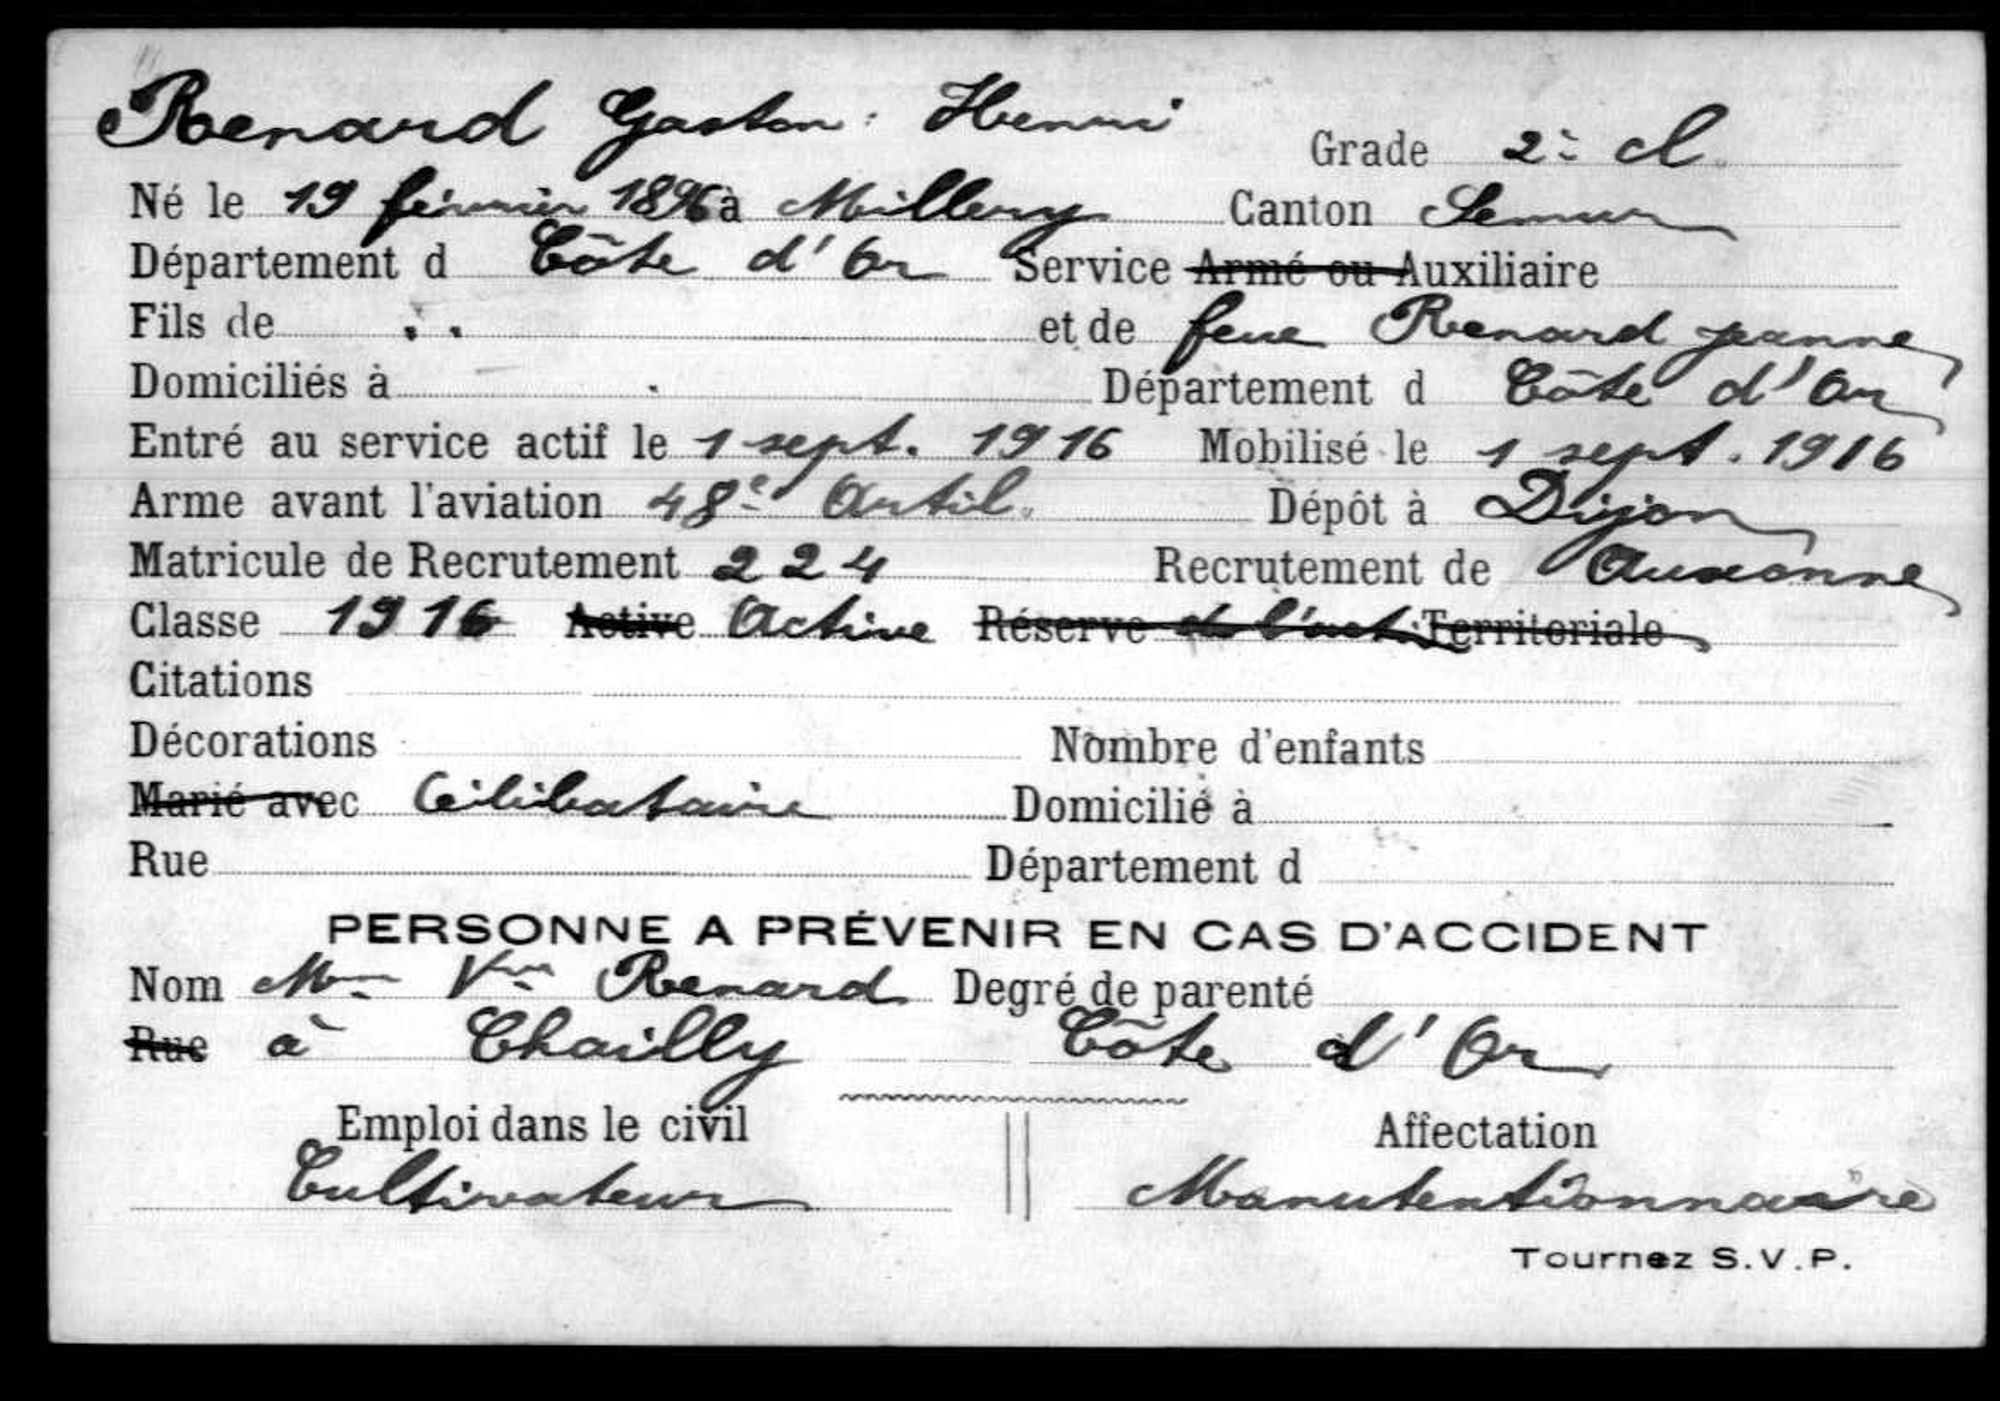 Renard Gaston Henri Grade 2e cl.
Né le 19 février 1896 à Millery Canton Semur
Département d Côte d'Or Service Armé ou Auxiliaire
Fils de et de feue Renard Jeanne
Domiciliés à Département d Côte d'Or
Entré au service actif le 1 sept. 1916 Mobilisé le 1 sept. 1916
Arme avant l'aviation 48e Artil. Dépôt à Dijon
Matricule de Recrutement 224 Recrutement de Auxonne
Classe 1916 Active Active Réserve de l'act. Territoriale
Citations
Décorations Nombre d'enfants
Marié avec Célibataire Domicilié à
Rue Département d
PERSONNE A PRÉVENIR EN CAS D'ACCIDENT
Nom Mme Vve Renard Degré de parenté
Rue à Chailly Côte d'Or
Emploi dans le civil Affectation
Cultivateur Manutentionnaire
Tournez S.V.P.